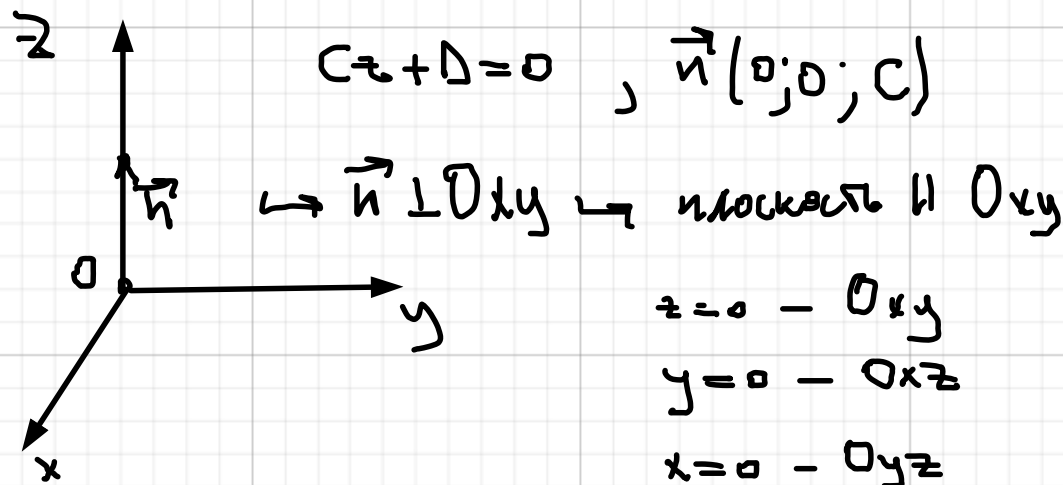 z
Cz + D = 0 , n⃗ (0; 0; C)
n⃗
↦ n⃗ ⊥ Oxy ↦ плоскость || Oxy
0
y
z = 0 – Oxy
y = 0 – Oxz
x
x = 0 – Oyz